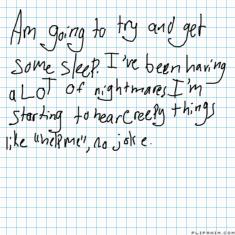 Am going to try and get
some sleep. I've been having
a LOT of nightmares I'm
starting to hear creepy things
like "help me", no joke.
FLIPANIM.COM